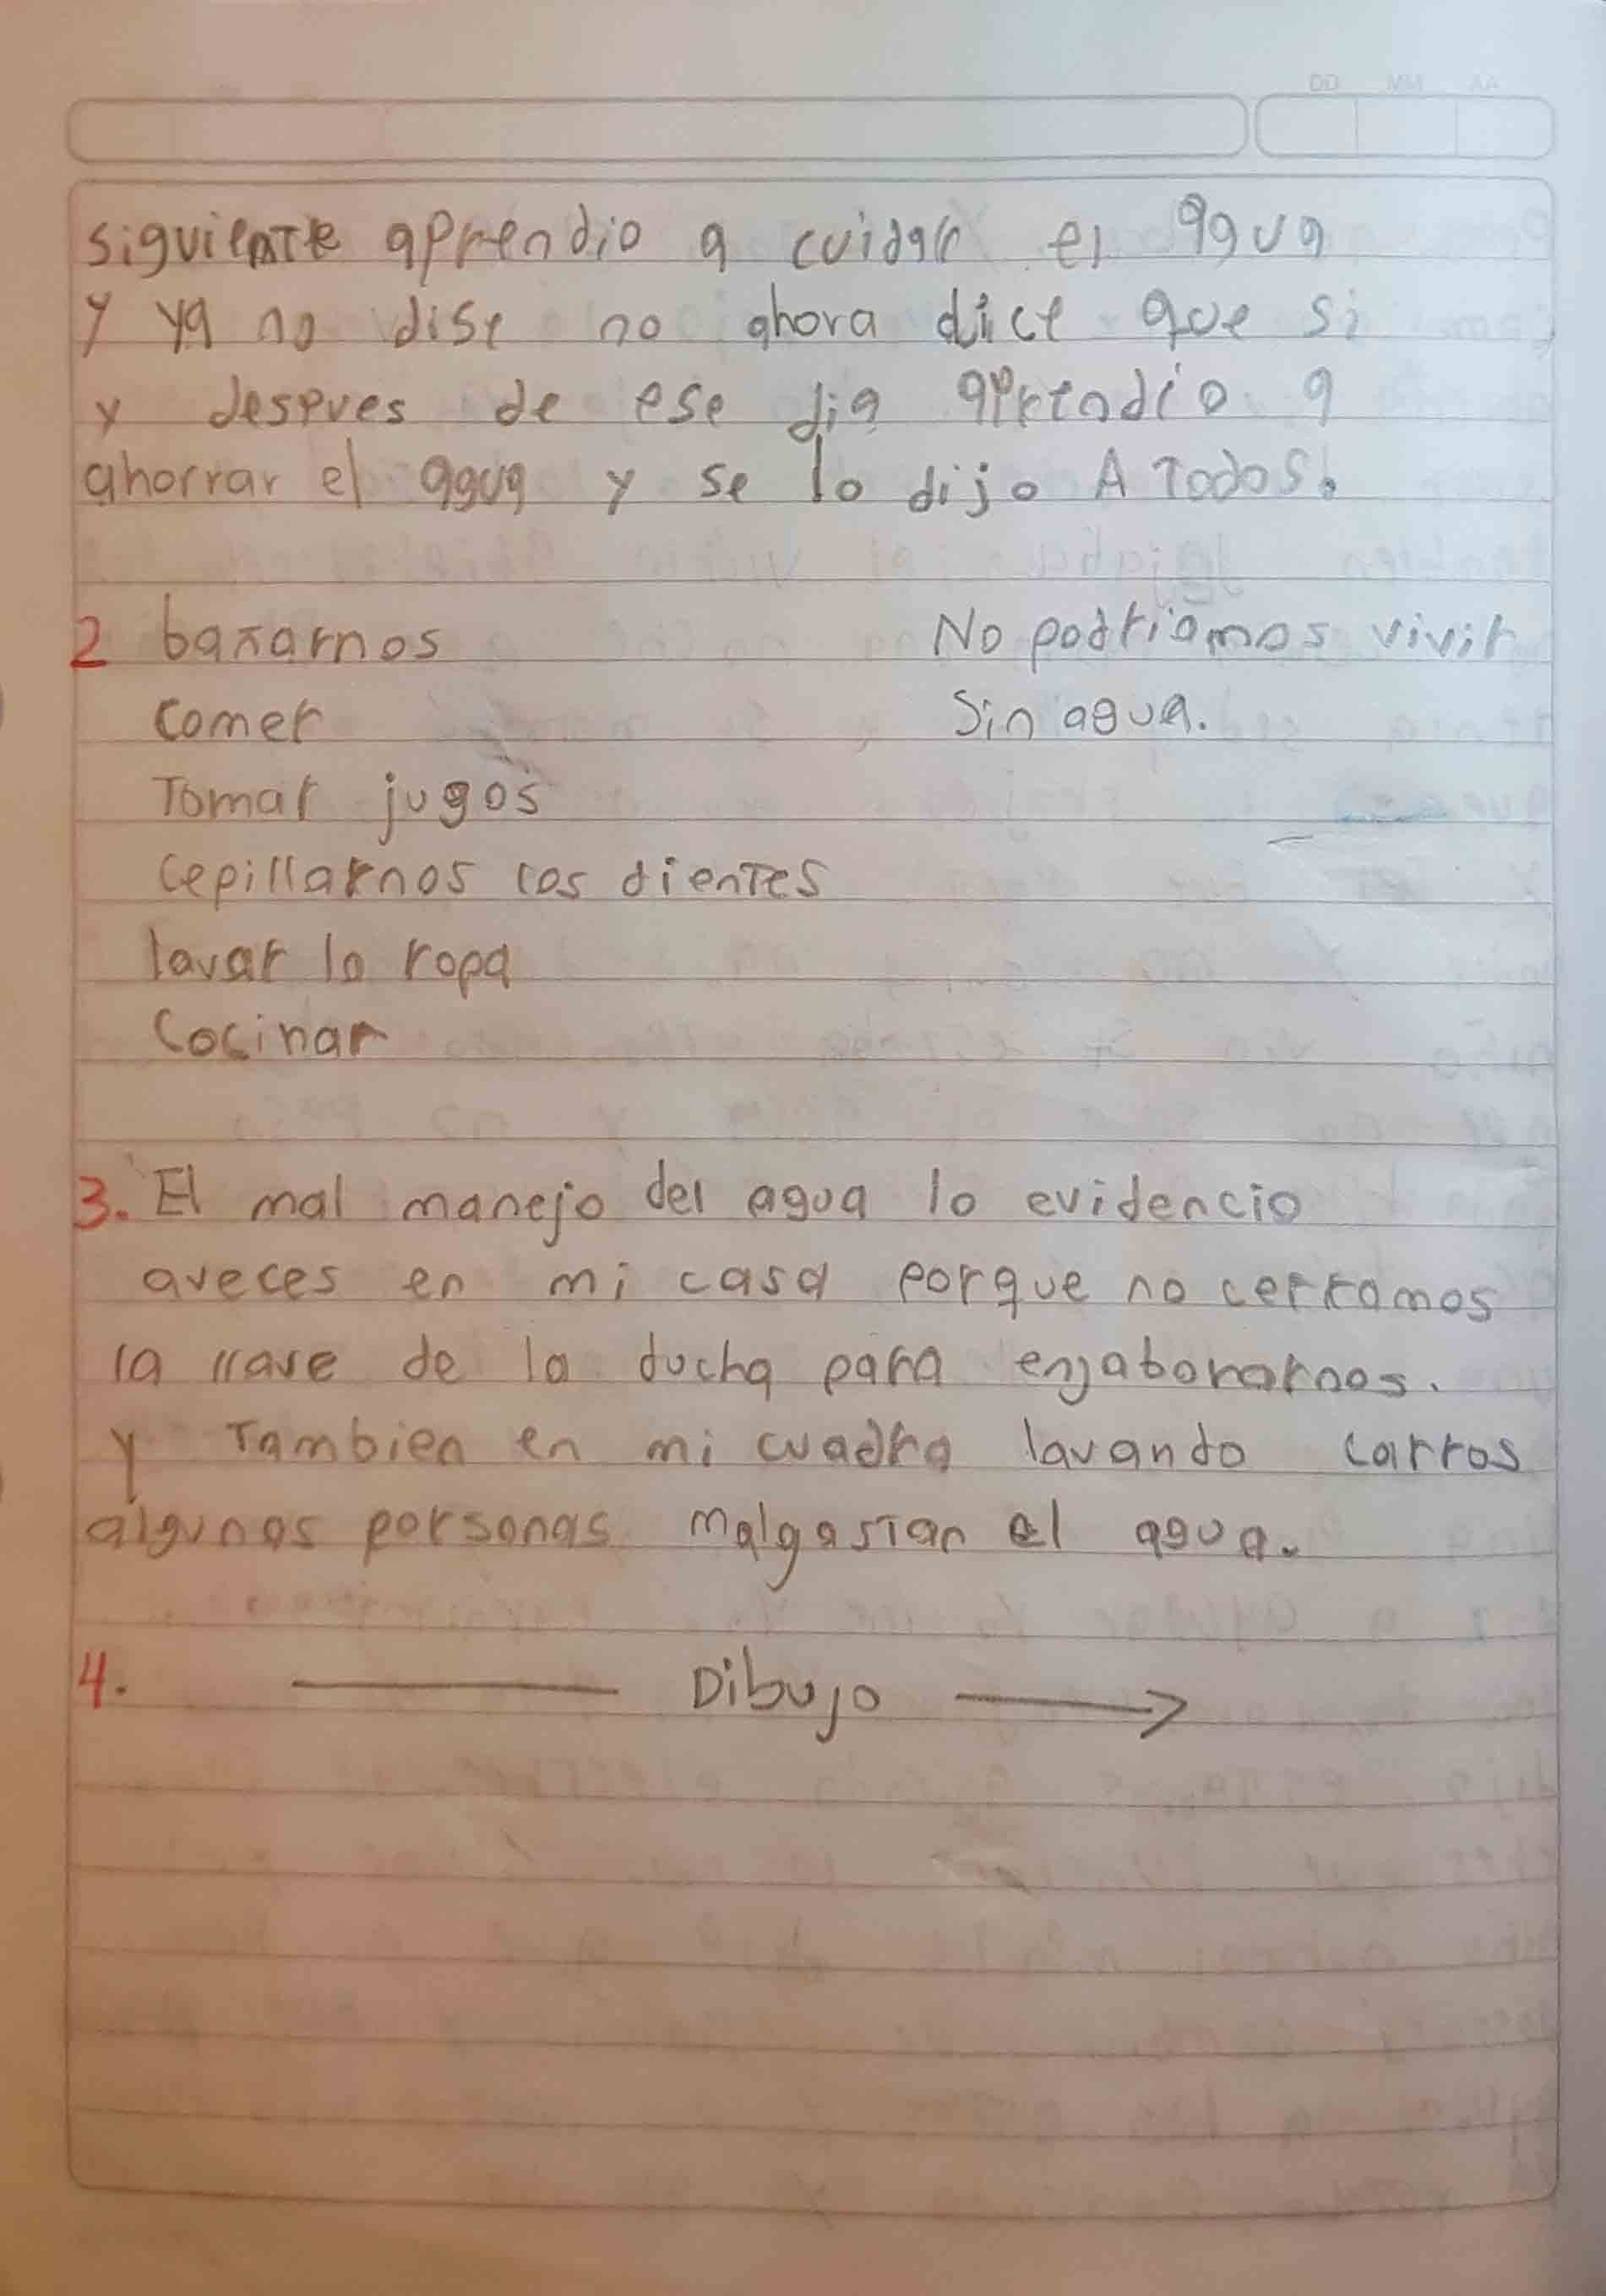 siguiente aprendio a cuidar el agua
y ya no dise no ahora dice que si
y despues de ese dia aprendio a
ahorrar el agua y se lo dijo A Todos.
2 bañarnos
No podriamos vivir
Comer
Sin agua.
Tomar jugos
cepillarnos los dientes
lavar la ropa
Cocinar
3. El mal manejo del agua lo evidencio
aveces en mi casa porque no cerramos
la llave de la ducha para enjabonarnos.
y Tambien en mi cuadra lavando carros
algunas personas malgastan el agua.
4. Dibujo